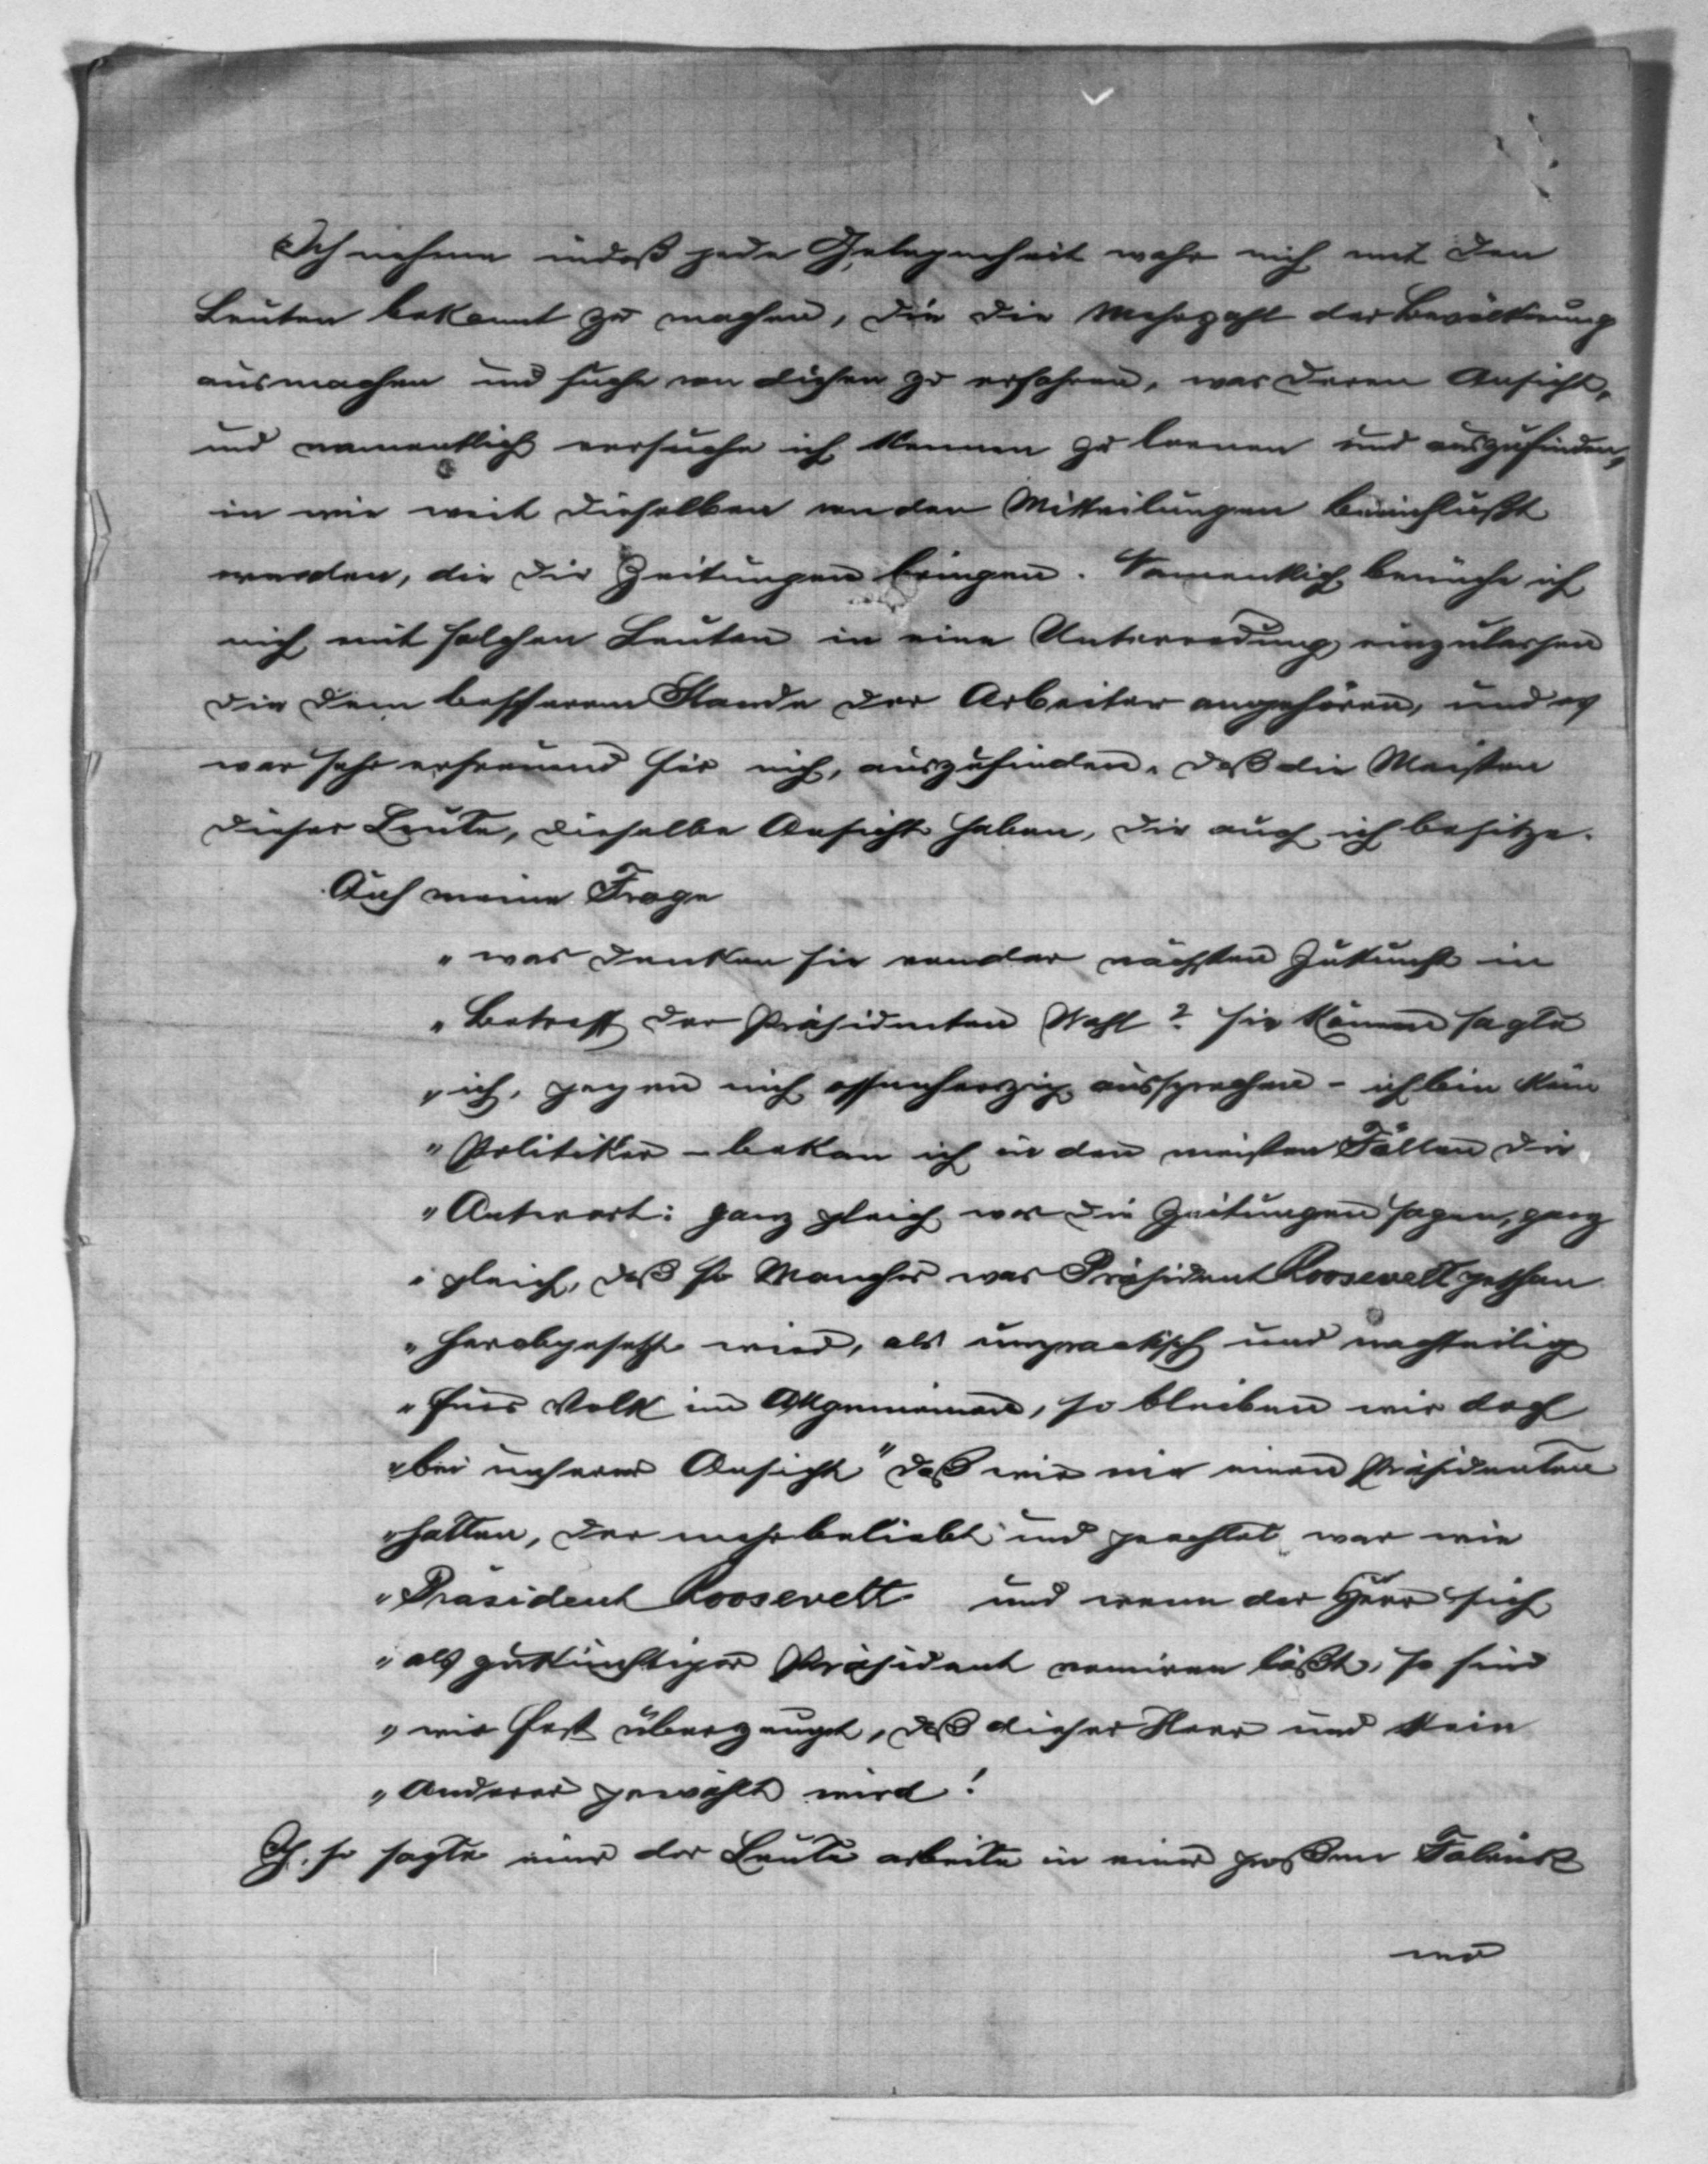 Ich nehme indeß jede Gelegenheit wahr mich mit den
Leuten bekannt zu machen, die die Mehrzahl der Bevölkerung
ausmachen und suche von diesen zu erfahren, was deren Ansicht,
und namentlich versuche ich kennen zu lernen und auszufinden,
in wie weit dieselben von den Mitteilungen beeinflußt
werden, die die Zeitungen bringen. Namentlich bemühe ich
mich mit solchen Leuten in eine Unterredung einzulassen
die dem besseren Stande der Arbeiter angehören, und es
war sehr erfreuend für mich, auszufinden, daß die Meisten
dieser Leute, dieselbe Ansicht haben, die auch ich besitze.
Auf meine Frage
" was denken sie von der nächsten Zukunft in
" Betreff der Präsidenten Wahl? sie können sagte
" ich, gegen mich offenherzig aussprechen - ich bin kein
" Politiker - bekam ich in den meisten Fällen die
" Antwort: ganz gleich was die Zeitungen sagen, ganz
" gleich, daß so Manches was Präsident Roosevelt gethan
" herabgesetzt wird, als unpractisch und nachteilig
" fürs Volk im Allgemeinen, so bleiben wir doch
" bei unserer Ansicht " daß wir nie einen Präsidenten
" hatten, der mehr beliebt und geachtet war wie
" Präsident Roosevelt und wenn der Herr sich
" als zukünftiger Präsident nomiren läßt, so sind
" wir fest überzeugt, daß dieser Herr und kein
" Anderer gewählt wird!
Ich, so sagte einer der Leute arbeite in einer großen Fabrick
und